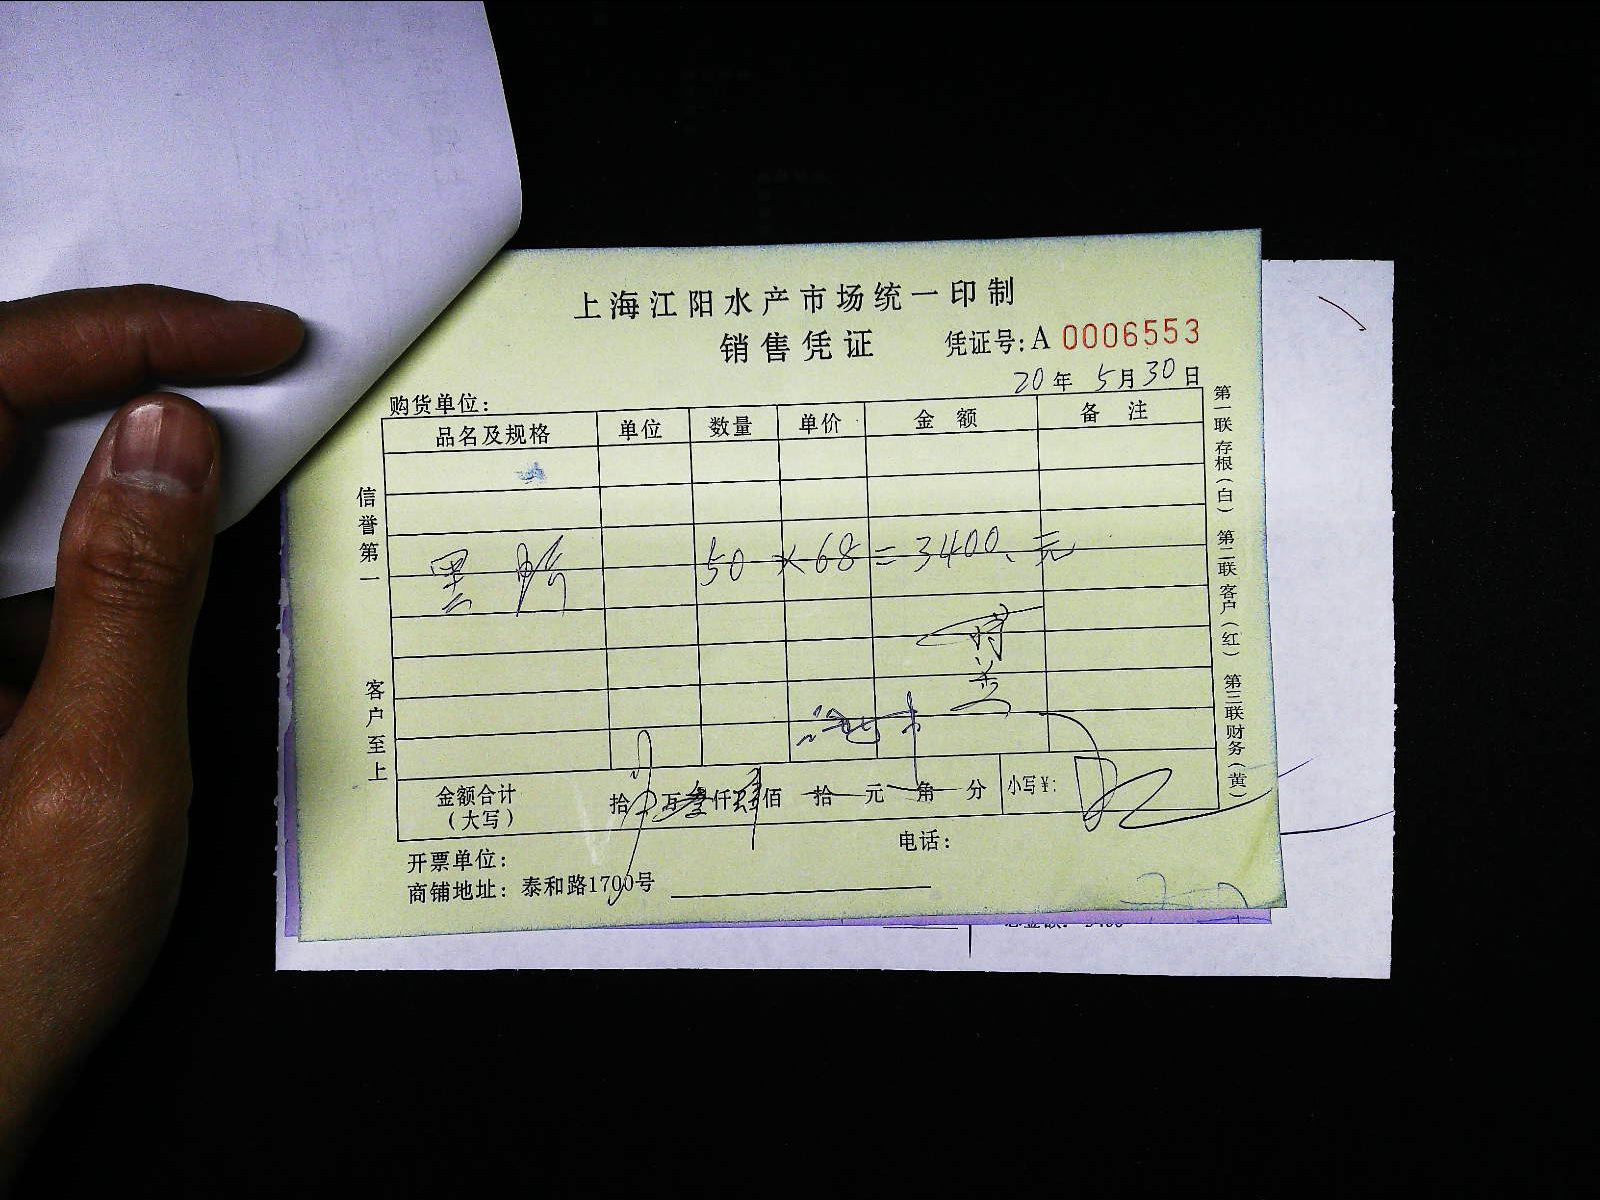 上海江阳水产市场统一印制
销售凭证 凭证号: A 0006553
20年 5月30日
购货单位:
品名及规格 单位 数量 单价 金额 备注
黑 50×68=3400.元
金额合计(大写) 拾 万叁仟肆佰 拾 元 角 分 小写¥:
开票单位: 电话:
商铺地址: 泰和路1700号
信誉第一
客户至上
第一联存根(白) 第二联客户(红) 第三联财务(黄)